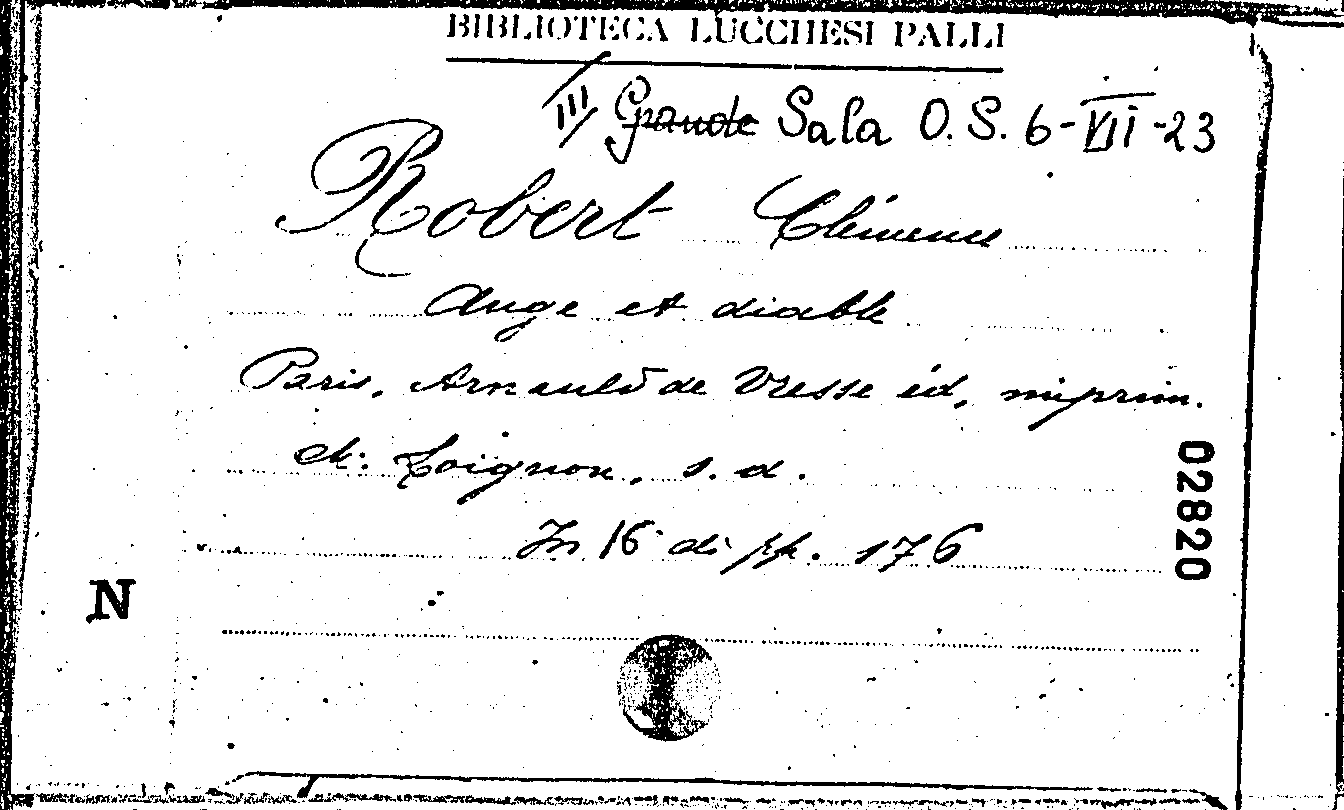 BIBLIOTECA LUCCHESI PALLI
III Grande Sala O.S. 6-VII-23
Robert Clémence
Ange et diable
Paris, Arnauld de Vresse éd, imprim.
Ch. Loignon, s. d.
In 16° di pp. 176
02820
N